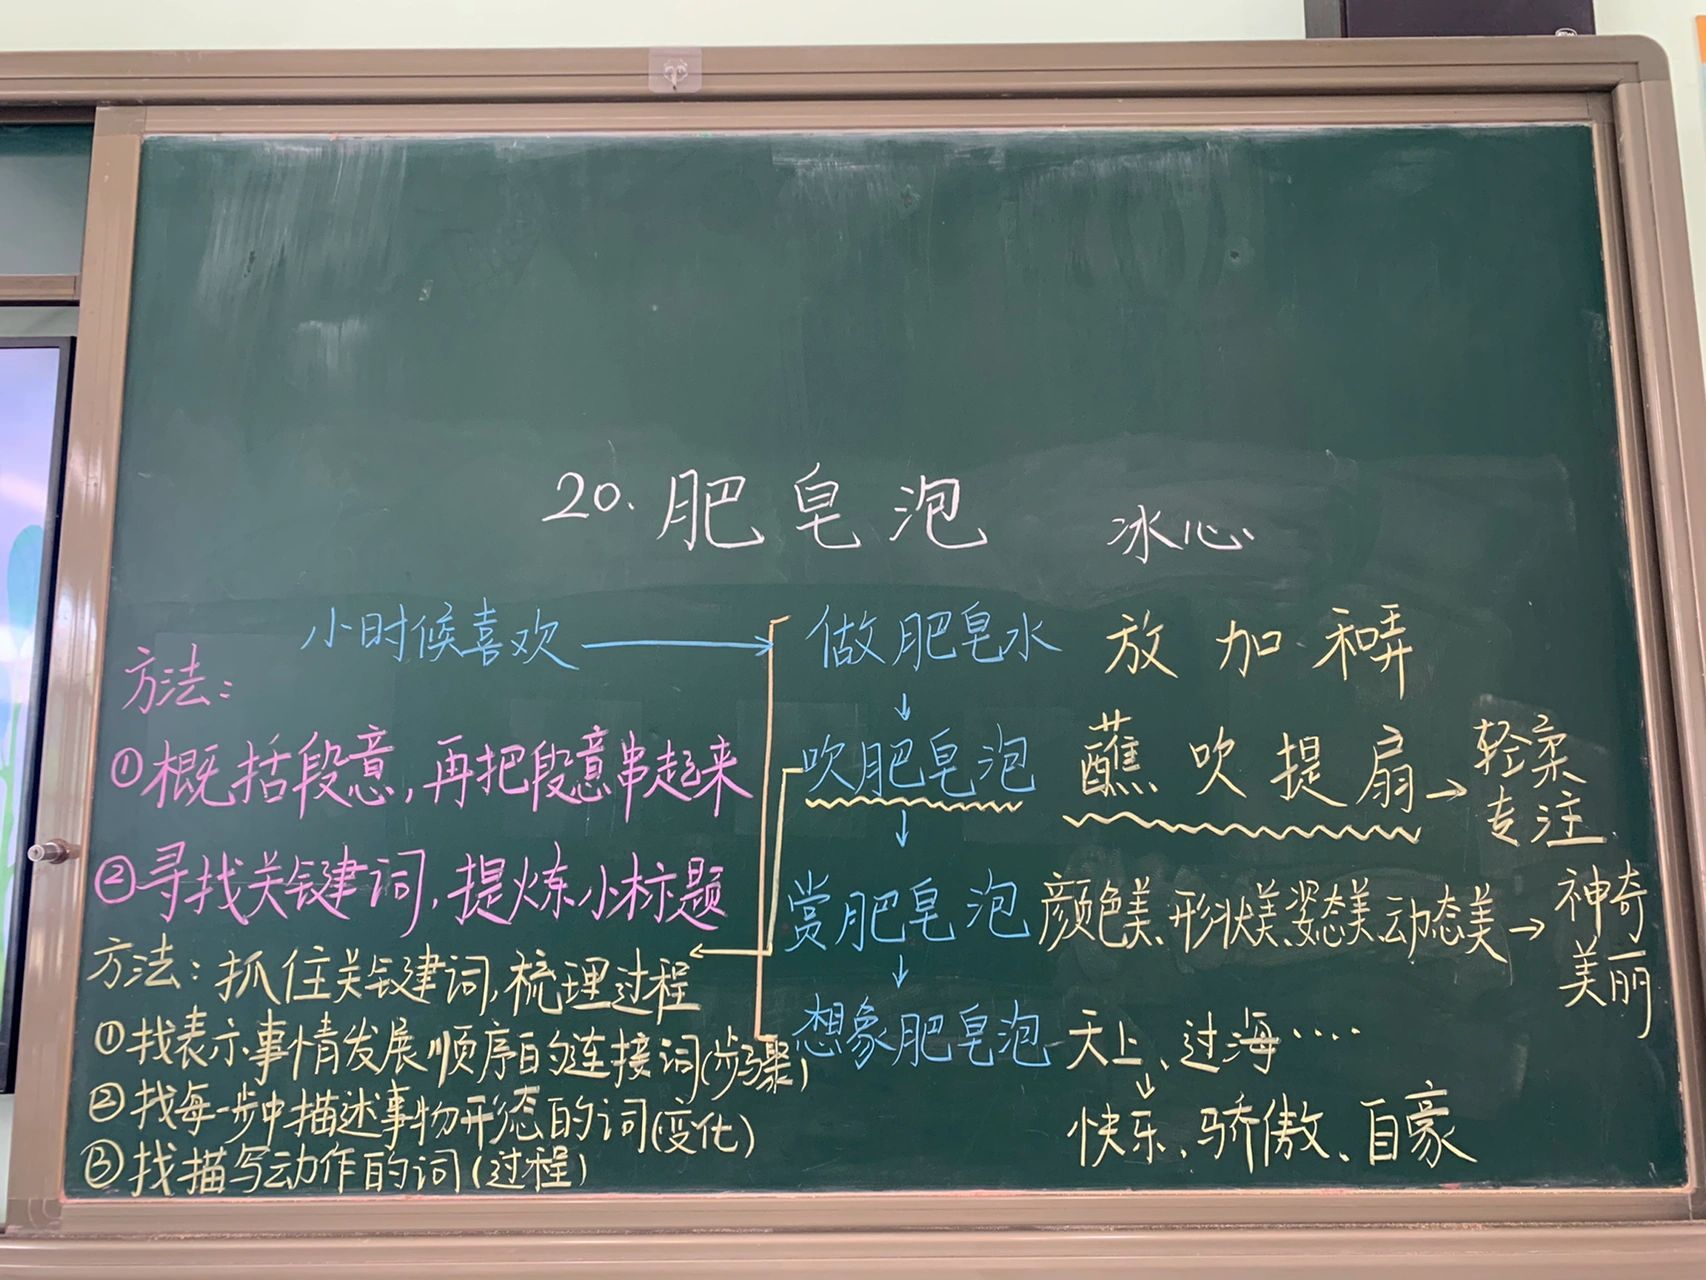 20.肥皂泡 冰心
小时候喜欢
方法:
①概括段意,再把段意串起来
②寻找关键词,提炼小标题
方法:抓住关键词,梳理过程
①找表示事情发展顺序的连接词(步骤)
②找每一步中描述事物形态的词(变化)
③找描写动作的词(过程)
做肥皂水 放 加 和弄
↓
吹肥皂泡 蘸 吹 提 扇→轻柔
专注
↓
赏肥皂泡 颜色美、形状美、姿态美、动态美→神奇
美丽
↓
想象肥皂泡 天上、过海····
↓
快乐、骄傲、自豪